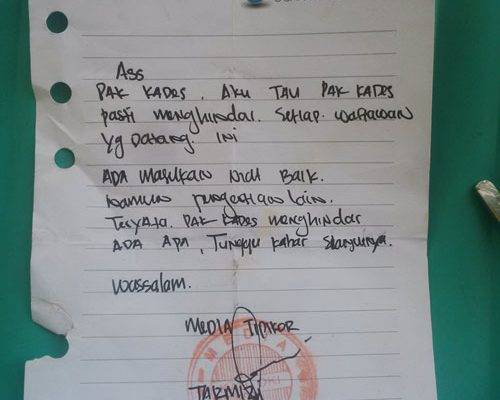 Ass
PAK KADES, AKU TAU PAK KADES
pasti menghindar. Setiap. wartawan
yg Datang. INI
ADA MASUKAN Baik.
Namun pengertian lain.
Ternyata. PAK KADES menghindar
ADA APA, Tunggu kabar Slanjutnya.
Wassalam.
MEDIA TIPIKOR
MEDIA
TARMIZI